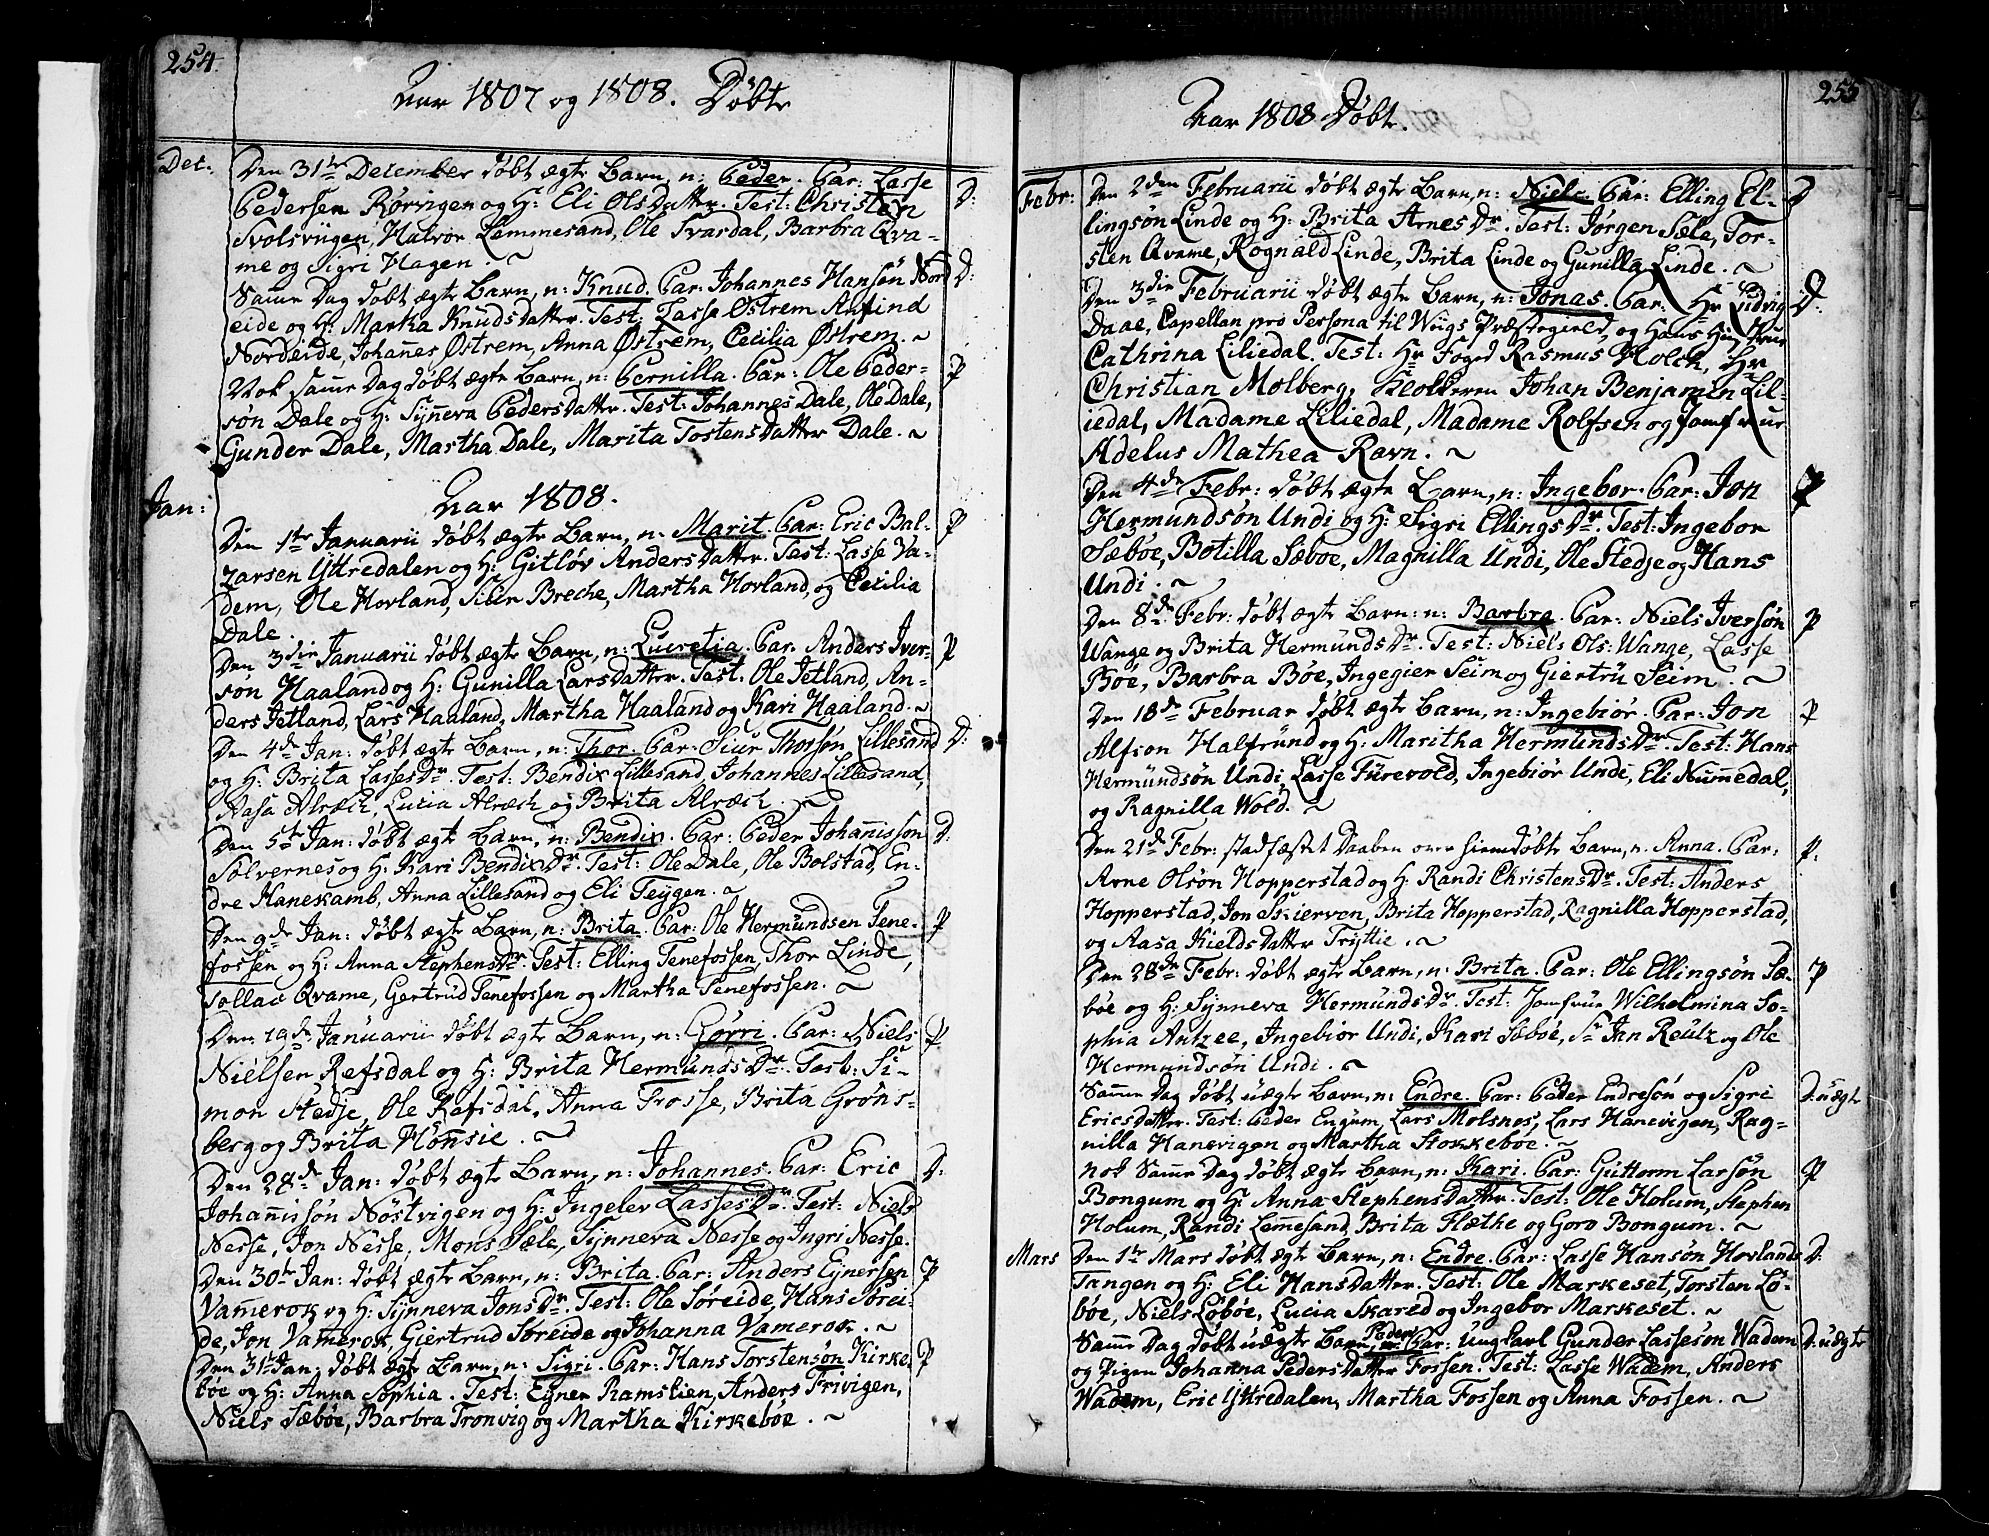 254
Aar 1807 og 1808. Döbte
Dec: Den 31te December döbt ægte Barn, n: Peder. Par: Lasse D:
Pedersen Rörvigen og H: Eli OlsDatter. Test: Christen
Svolsviigen, Halvor Lemmesand, Ole Svardal, Barbra Qva-
me og Sigri Hagen. ~
Samme Dag döbt ægte Barn, n: Knud. Par: Johannes Hansön Nord D:
eide og H: Marka KnudsDatter. Test: Lasse Östrem Anfind
Nordeide, Johannes Östrem, Anna Östrem, Cecilia Östrem. ~
Nok samme Dag döbt ægte Barn, n: Pernilla. Par: Ole Peder- P
sön Dale og H: Synneva PedersDatter. Test: Johannes Dale, Ole Dale,
Gunder Dale, Martha Dale, Marita TostensDatter Dale. ~
Jan: Aar 1808.
Den 1te Januarii döbt ægte Barn, n: Marit. Par: Eric Bal- P
zarsen Yttredalen og H: Gitlöv AndersDatter. Test: Lasse Va-
dem, Ole Hovland, Siur Breche, Martha Hovland, og Cecilia
Dale.
Den 3die Januarii döbt ægte Barn, n: Lucretia. Par: Anders Iver- P
sön Haaland og H: Gunilla LarsDatter. Test: Ole Jetland, An-
ders Jetland, Lars Haaland, Martha Haaland og Kari Haaland. ~
Den 4de Jan: döbt ægte Barn, n: Thor. Par: Siur Thorsön Lillesand D:
og H: Brita LassesDr. Test: Bendix Lillesand, Johannes Lillesand,
Aasa Alræck, Lucia Alræck og Brita Alræck. ~
Den 5te Jan: döbt ægte Barn, n: Bendix. Par: Peder Johannisson D:
Solvernes og H: Kari BendixDr. Test: Ole Dale, Ole Bolstad, En-
dre Hanekamb, Anna Lillesand og Eli Teygen. ~
Den 9de Jan: döbt ægte Barn, n: Brita. Par: Ole Hermundsen Tene- P
fossen og H: Anna StephensDr. Test: Elling Tenefossen, Thor Linde,
Tollac Qvame, Gertrud Tenefossen og Martha Tenefossen. ~
Den 19de Januarii döbt ægte Barn, n: Görri. Par: Niels P
Nielsen Refsdal og H: Brita HermundsDr. Test: Si-
mon Stedje, Ole Refsdal, Anna Fosse, Brita Gröns-
berg og Brita Hönsie. ~
Den 28de Jan: döbt ægte Barn, n: Johannes. Par: Eric D:
Johannisön Nöstvigen og H: Ingelev LassesDr. Test: Niels
Nesse, Jon Nesse, Mons Sæle, Synneva Nesse og Ingri Nesse.
Den 30te Jan: döbt ægte Barn, n: Brita. Par: Anders Eynersen P
Vamerok og H: Synneva JonsDr. Test: Ole Söreide, Hans Sörei-
de, Jon Vamerok, Giertrud Söreide og Johanna Vamerok. ~
Den 31te Jan: döbt ægte Barn, n: Sigri. Par: Hans Torstensön Kirke P
böe og H: Anna Sophia. Test: Eyner Ramslien, Anders Frivigen,
Niels Sæböe, Barbra Tronvig og Martha Kirkeböe. ~
255
Aar 1808 Döbt.
Febr: Den 2den Februarii döbt ægte Barn, n: Niels. Par: Elling El- D
lingsön Linde og H: Brita ArnesDr. Test: Jörgen Sæle, Tor-
sten Qvame, Rognald Linde, Brita Linde og Gunilla Linde. ~
Den 3die Februarii döbt ægte Barn, n: Jonas. Par: Hr Ludvig D:
Daae, Capellan pro Persona til Wiigs Præstegield, og Hans Hustrue
Cathrina Liliedal. Test: Hr Foged Rasmus Holck, Hr
Christian Molberg, Johan Benjamin Lil-
iedal, Madame Liliedal, Madame Rolfsen og Jomfrue
Adelus Mathea Ravn. ~
Den 4de Febr: döbt ægte Barn, n: Ingebor. Par: Jon P
Hermundsön Undi og H: Sigri EllingsDr. Test: Ingebor
Sæböe, Botilla Sæboe, Magnilla Undi, Ole Stedje og Hans
Undi. ~
Den 8de Febr: döbt ægte Barn: n: Barbra. Par: Niels Iversön P
Wange og Brita HermundsDr. Test: Niels Ols: Wange, Lasse
Böe, Barbra Böe, Ingegier Seim og Giertru Seim. ~
Den 18de Februar döbt ægte Barn, n: Ingebiör. Par: Jon P
Alfson Halfrund og H: Maritha HermundsDr. Test: Hans
Hermundsön Undi, Lasse Turevold, Ingebiör Undi, Eli Nummedal,
og Ragnilla Wold. ~
Den 21de Febr: stadfæstet Daaben over hiemdöbte Barn, n. Anna. Par: P:
Arne Olsön Hopperstad og H: Randi ChristensDr. Test: Anders
Hopperstad, Jon Skierven, Brita Hopperstad, Ragnilla Hopperstad,
og Aasa KieldsDatter Tryttie. ~
Den 28de Febr: döbt ægte Barn, n: Brita. Par: Ole Ellingsön Sæ- P
böe og H: Synneva HermundsDr. Test: Jomfrue Wilhelmina So-
phia Antzee, Ingebiör Undi, Kari Sæböe, Sr Jan Reutz og Ole
Hermundsön Undi. ~
Samme Dag döbt uægte Barn, n: Endre. Par: Peder Endresön og Sigri D: uægte
EricsDatter. Test: Peder Engum, Lars Molsnes, Lars Hanevigen, Rag-
nilla Hanevigen og Martha Stokkeboe. ~
Nok Samme Dag döbt ægte Barn, n: Kari. Par: Guttorm Larsön P
Bongum og H: Anna StephensDatter. Test: Ole Holum, Stephen
Holum, Randi Lemmesand, Brita Flæthe og Goro Bongum. ~
Mars Den 1te Mars döbt ægte Barn, n: Endre. Par: Lasse Hansön Hovlands D:
Tangen og H: Eli HansDatter. Test: Ole Markeset, Torsten Lö-
böe, Niels Löböe, Lucia Skared og Ingebor Markeset. ~
Samme Dag döbt uægte Barn, n: Peder. Par: Ungkarl Gunder Lassesön Wadem D: uægte
og Pigen Johanna PedersDatter Fossen. Test: Lasse Wadem, Anders
Wadem, Eric Yttredalen, Martha Fossen og Anna Fossen. ~